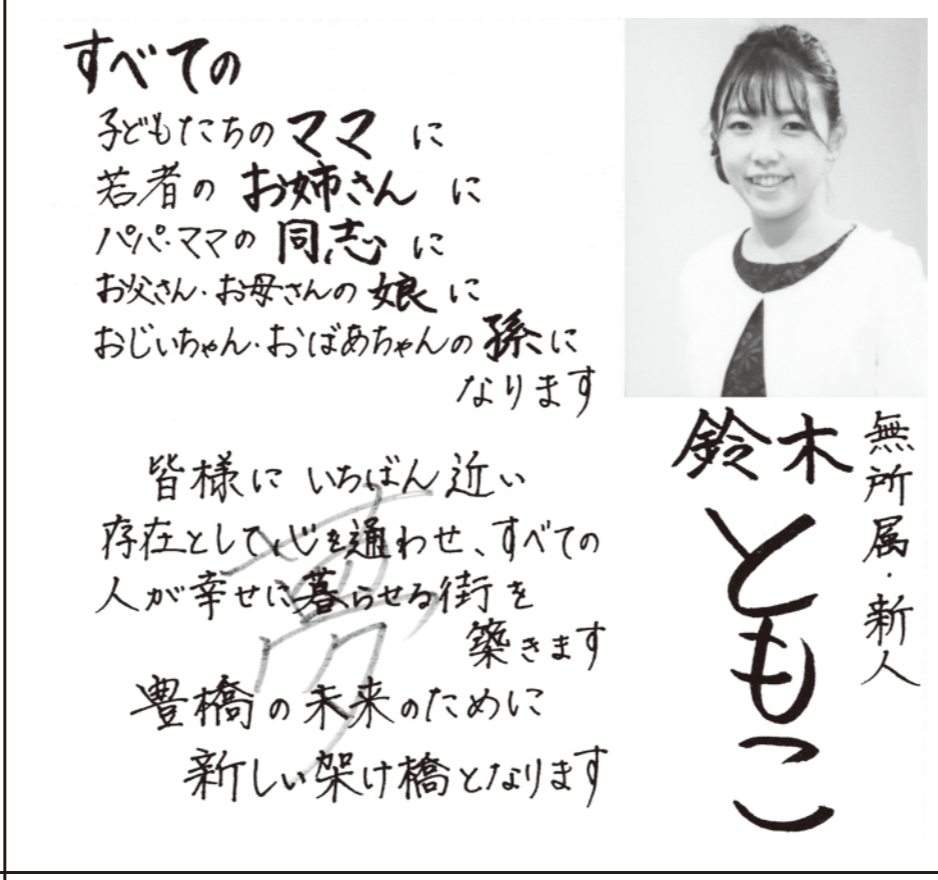 すべての
子どもたちのママに
若者のお姉さんに
パパ・ママの同志に
お父さん・お母さんの娘に
おじいちゃん・おばあちゃんの孫に
なります
皆様にいちばん近い
存在として、心を通わせ、すべての
人が幸せに暮らせる街を
築きます
豊橋の未来のために
新しい架け橋となります
夢
無所属・新人
鈴木
ともこ